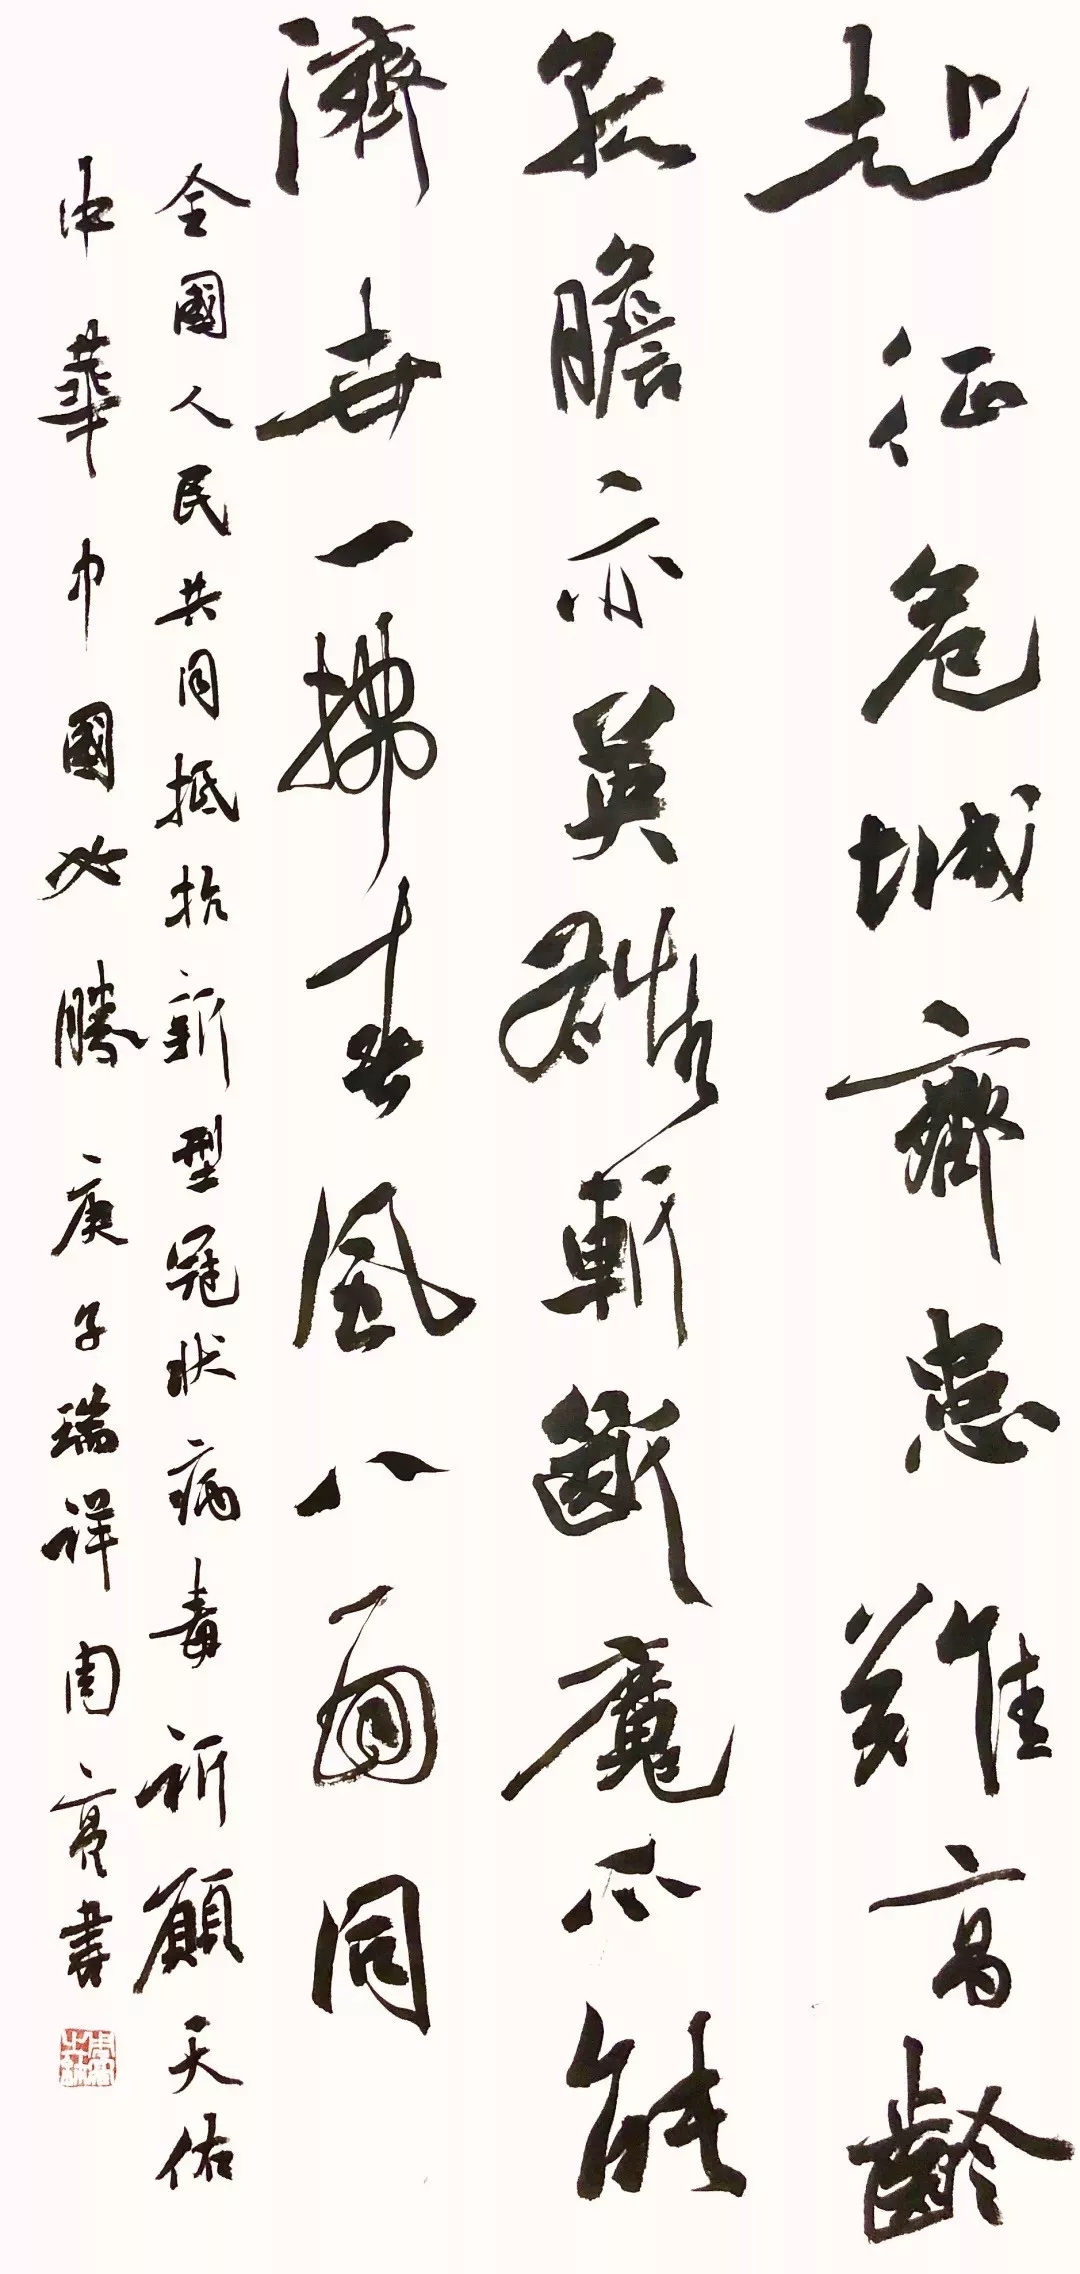 赴征危城齊患難高齡
孤膽亦英雄斬斷魔爪能
濟世一拂春風八面同
全國人民共同抵抗新型冠状病毒祈願天佑
中華中國必勝 庚子瑞祥周亮書